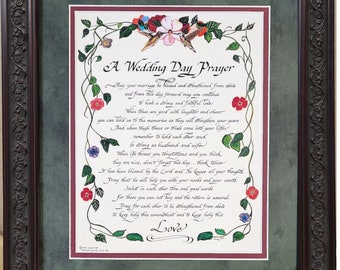 A Wedding Day Prayer
May your marriage be blessed and strengthened from above
and from this day forward may you continue
to have a strong and faithful love.
When times are good with laughter and cheer
you can hold on to the memories as they will strengthen your years.
And when tough times or trials come into your lives
remember to hold each other and
be strong as husband and wife.
When life throws you temptations and you think,
they are nice, don't forget this day... think twice.
It has been blessed by the Lord and He knows all your thoughts.
Pray that he will help you with your needs and your wants.
Invest in each other time and good words
for these you can not buy and the return is assured.
Pray for each other to be strengthened from above
to keep holy this commitment and to keep holy this
Love